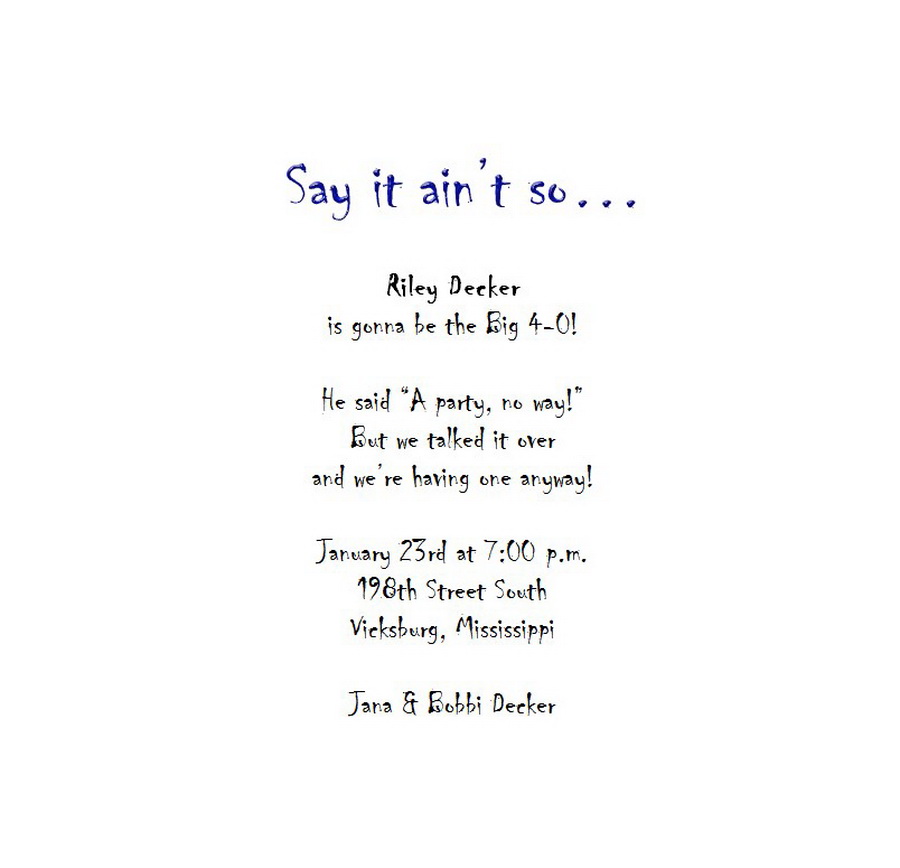 Say it ain't so...
Riley Decker
is gonna be the Big 4-0!
He said “A party, no way!”
But we talked it over
and we're having one anyway!
January 23rd at 7:00 p.m.
198th Street South
Vicksburg, Mississippi
Jana & Bobbi Decker